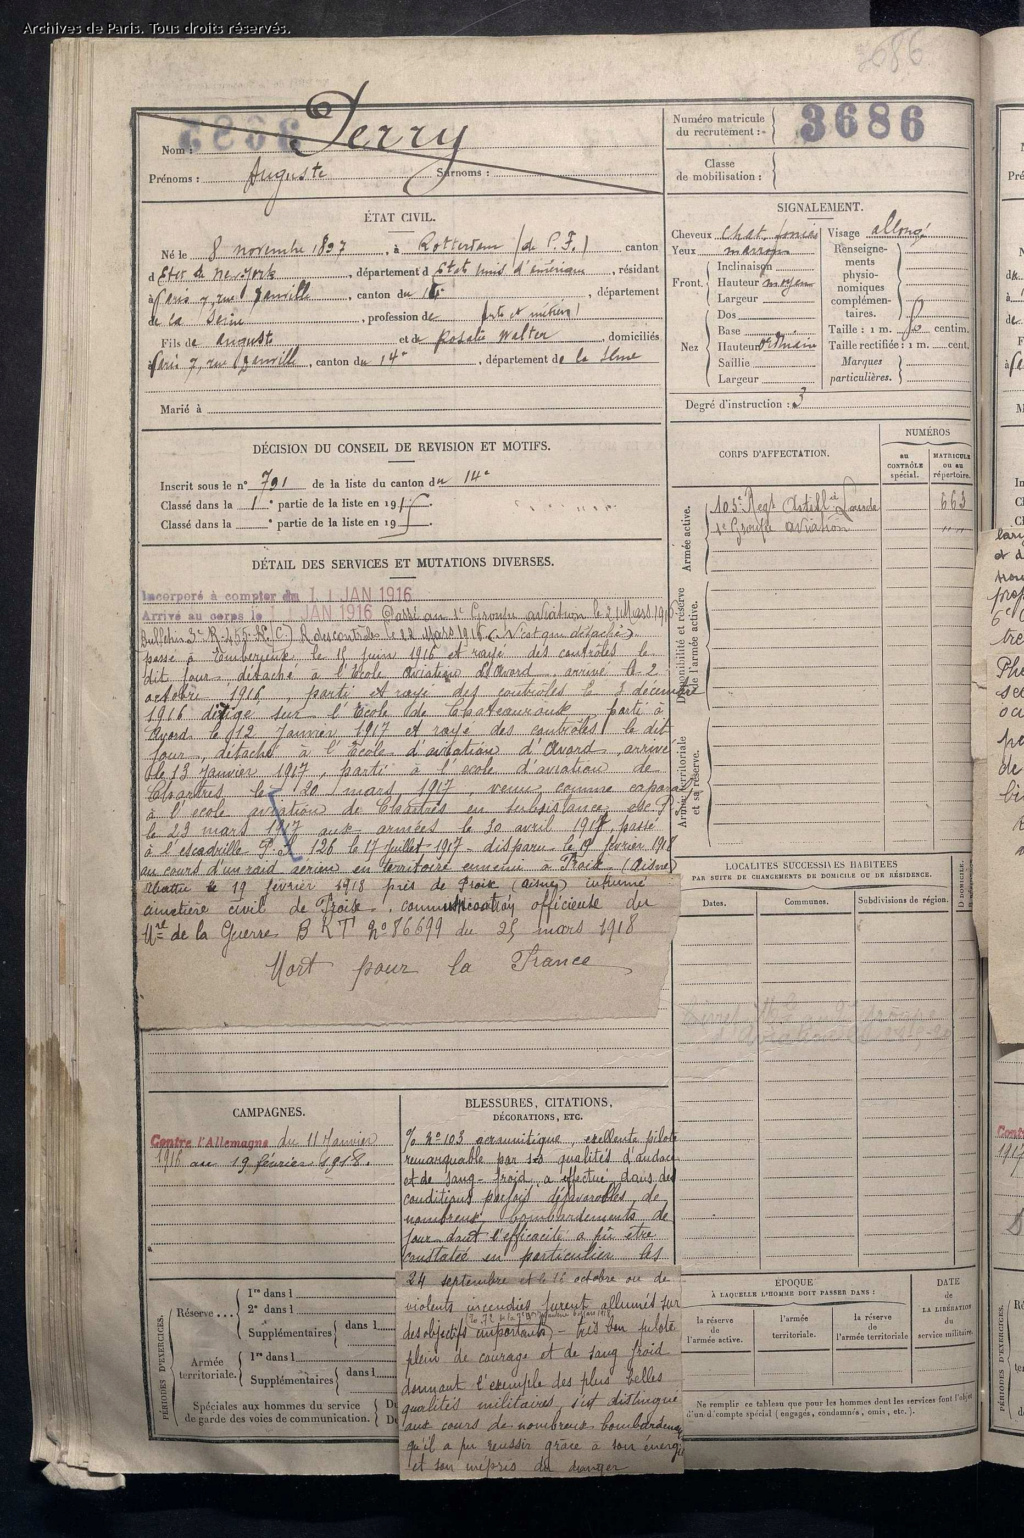 Archives de Paris. Tous droits réservés.
3686
Nom : Perry
Prénoms : Auguste Surnoms :
Numéro matricule du recrutement : 3686
Classe de mobilisation :
ÉTAT CIVIL.
Né le 8 novembre 1897, à Rotterdam (de P. F.) canton
d Etat de New York, département d Etats Unis d'amérique, résidant
à Paris 7, rue , canton du 14e, département
de la Seine, profession de arts et métiers
Fils de Auguste et de Rosalie Walter, domiciliés
à Paris 7, rue , canton du 14e, département de la Seine
Marié à
SIGNALEMENT.
Cheveux chat. foncés Visage allongé
Yeux marron
Front. Inclinaison
Hauteur moyen
Largeur
Nez Dos
Base
Hauteur
Saillie
Largeur
Renseignements physionomiques complémentaires.
Taille : 1 m. 80 centim.
Taille rectifiée : 1 m. cent.
Marques particulières.
Degré d'instruction : 3
DÉCISION DU CONSEIL DE REVISION ET MOTIFS.
Inscrit sous le n° 791 de la liste du canton du 14e
Classé dans la 1e partie de la liste en 191
Classé dans la ° partie de la liste en 191
CORPS D'AFFECTATION.
NUMÉROS
au CONTRÔLE spécial.
MATRICULE ou au répertoire.
Armée active.
103e Régt Artillie Lourde 663
1er Groupe aviation " "
Disponibilité et réserve de l'armée active.
Armée territoriale et sa réserve.
DÉTAIL DES SERVICES ET MUTATIONS DIVERSES.
Incorporé à compter du 11 JAN 1916
Arrivé au corps le 11 JAN 1916 Passé au 1er Groupe aviation le 21 Mars 1916
Bulletin le 22 Mars 1916 (N'est que détaché)
passé à Ambérieux le 15 juin 1916 et rayé des contrôles le
dit jour, détaché à l'Ecole Aviation d'Avord, arrivé le 2
octobre 1916, parti et rayé des contrôles le décembre
1916 dirigé sur l'Ecole de Chateauroux, parti à
Avord le 12 Janvier 1917 et rayé des contrôles le dit
jour, détaché à l'Ecole d'aviation d'Avord arrivé
le 13 Janvier 1917, parti à l'école d'aviation de
Chartres le 20 mars 1917, venu comme caporal
à l'école aviation de Chartres en subsistance
le 23 mars 1917 aux armées le 30 avril 1917, passé
à l'escadrille P.S. 126 le 17 Juillet 1917 - disparu le 19 février 1918
au cours d'un raid aérien en territoire ennemi à Proix (Aisne)
abattu le 19 février 1918 près de Proix (Aisne) inhumé
cimetière civil de Proix. communication officieuse du
Mre de la Guerre B K T no 86699 du 25 mars 1918
Mort pour la France
LOCALITÉS SUCCESSIVES HABITÉES
PAR SUITE DE CHANGEMENTS DE DOMICILE OU DE RÉSIDENCE.
Dates. Communes. Subdivisions de région. D DOMICILE.
CAMPAGNES.
Contre l'Allemagne du 11 Janvier
1916 au 19 février 1918.
BLESSURES, CITATIONS,
DÉCORATIONS, ETC.
% No 103 aéronautique, excellent pilote
remarquable par ses qualités d'audace
et de sang-froid, a effectué dans des
conditions parfois défavorables de
nombreux bombardements de
jour dont l'efficacité a pu être
constatée en particulier les
24 septembre et le 1er octobre ou de
violents incendies furent allumés sur
des objectifs importants - très bon pilote
plein de courage et de sang froid
donnant l'exemple des plus belles
qualités militaires s'est distingué
aux cours de nombreux bombardements
qu'il a pu réussir grâce à son énergie
et son mépris du danger
PÉRIODES D'EXERCICES.
Réserve 1re dans l
2e dans l
Supplémentaires dans l
Armée territoriale. 1re dans l
Supplémentaires dans l
Spéciales aux hommes du service
de garde des voies de communication.
ÉPOQUE
À LAQUELLE L'HOMME DOIT PASSER DANS :
la réserve de l'armée active.
l'armée territoriale.
la réserve de l'armée territoriale
DATE de LA LIBÉRATION du service militaire.
Ne remplir ce tableau que pour les hommes dont les services font l'objet
d'un décompte spécial (engagés, condamnés, omis, etc.).